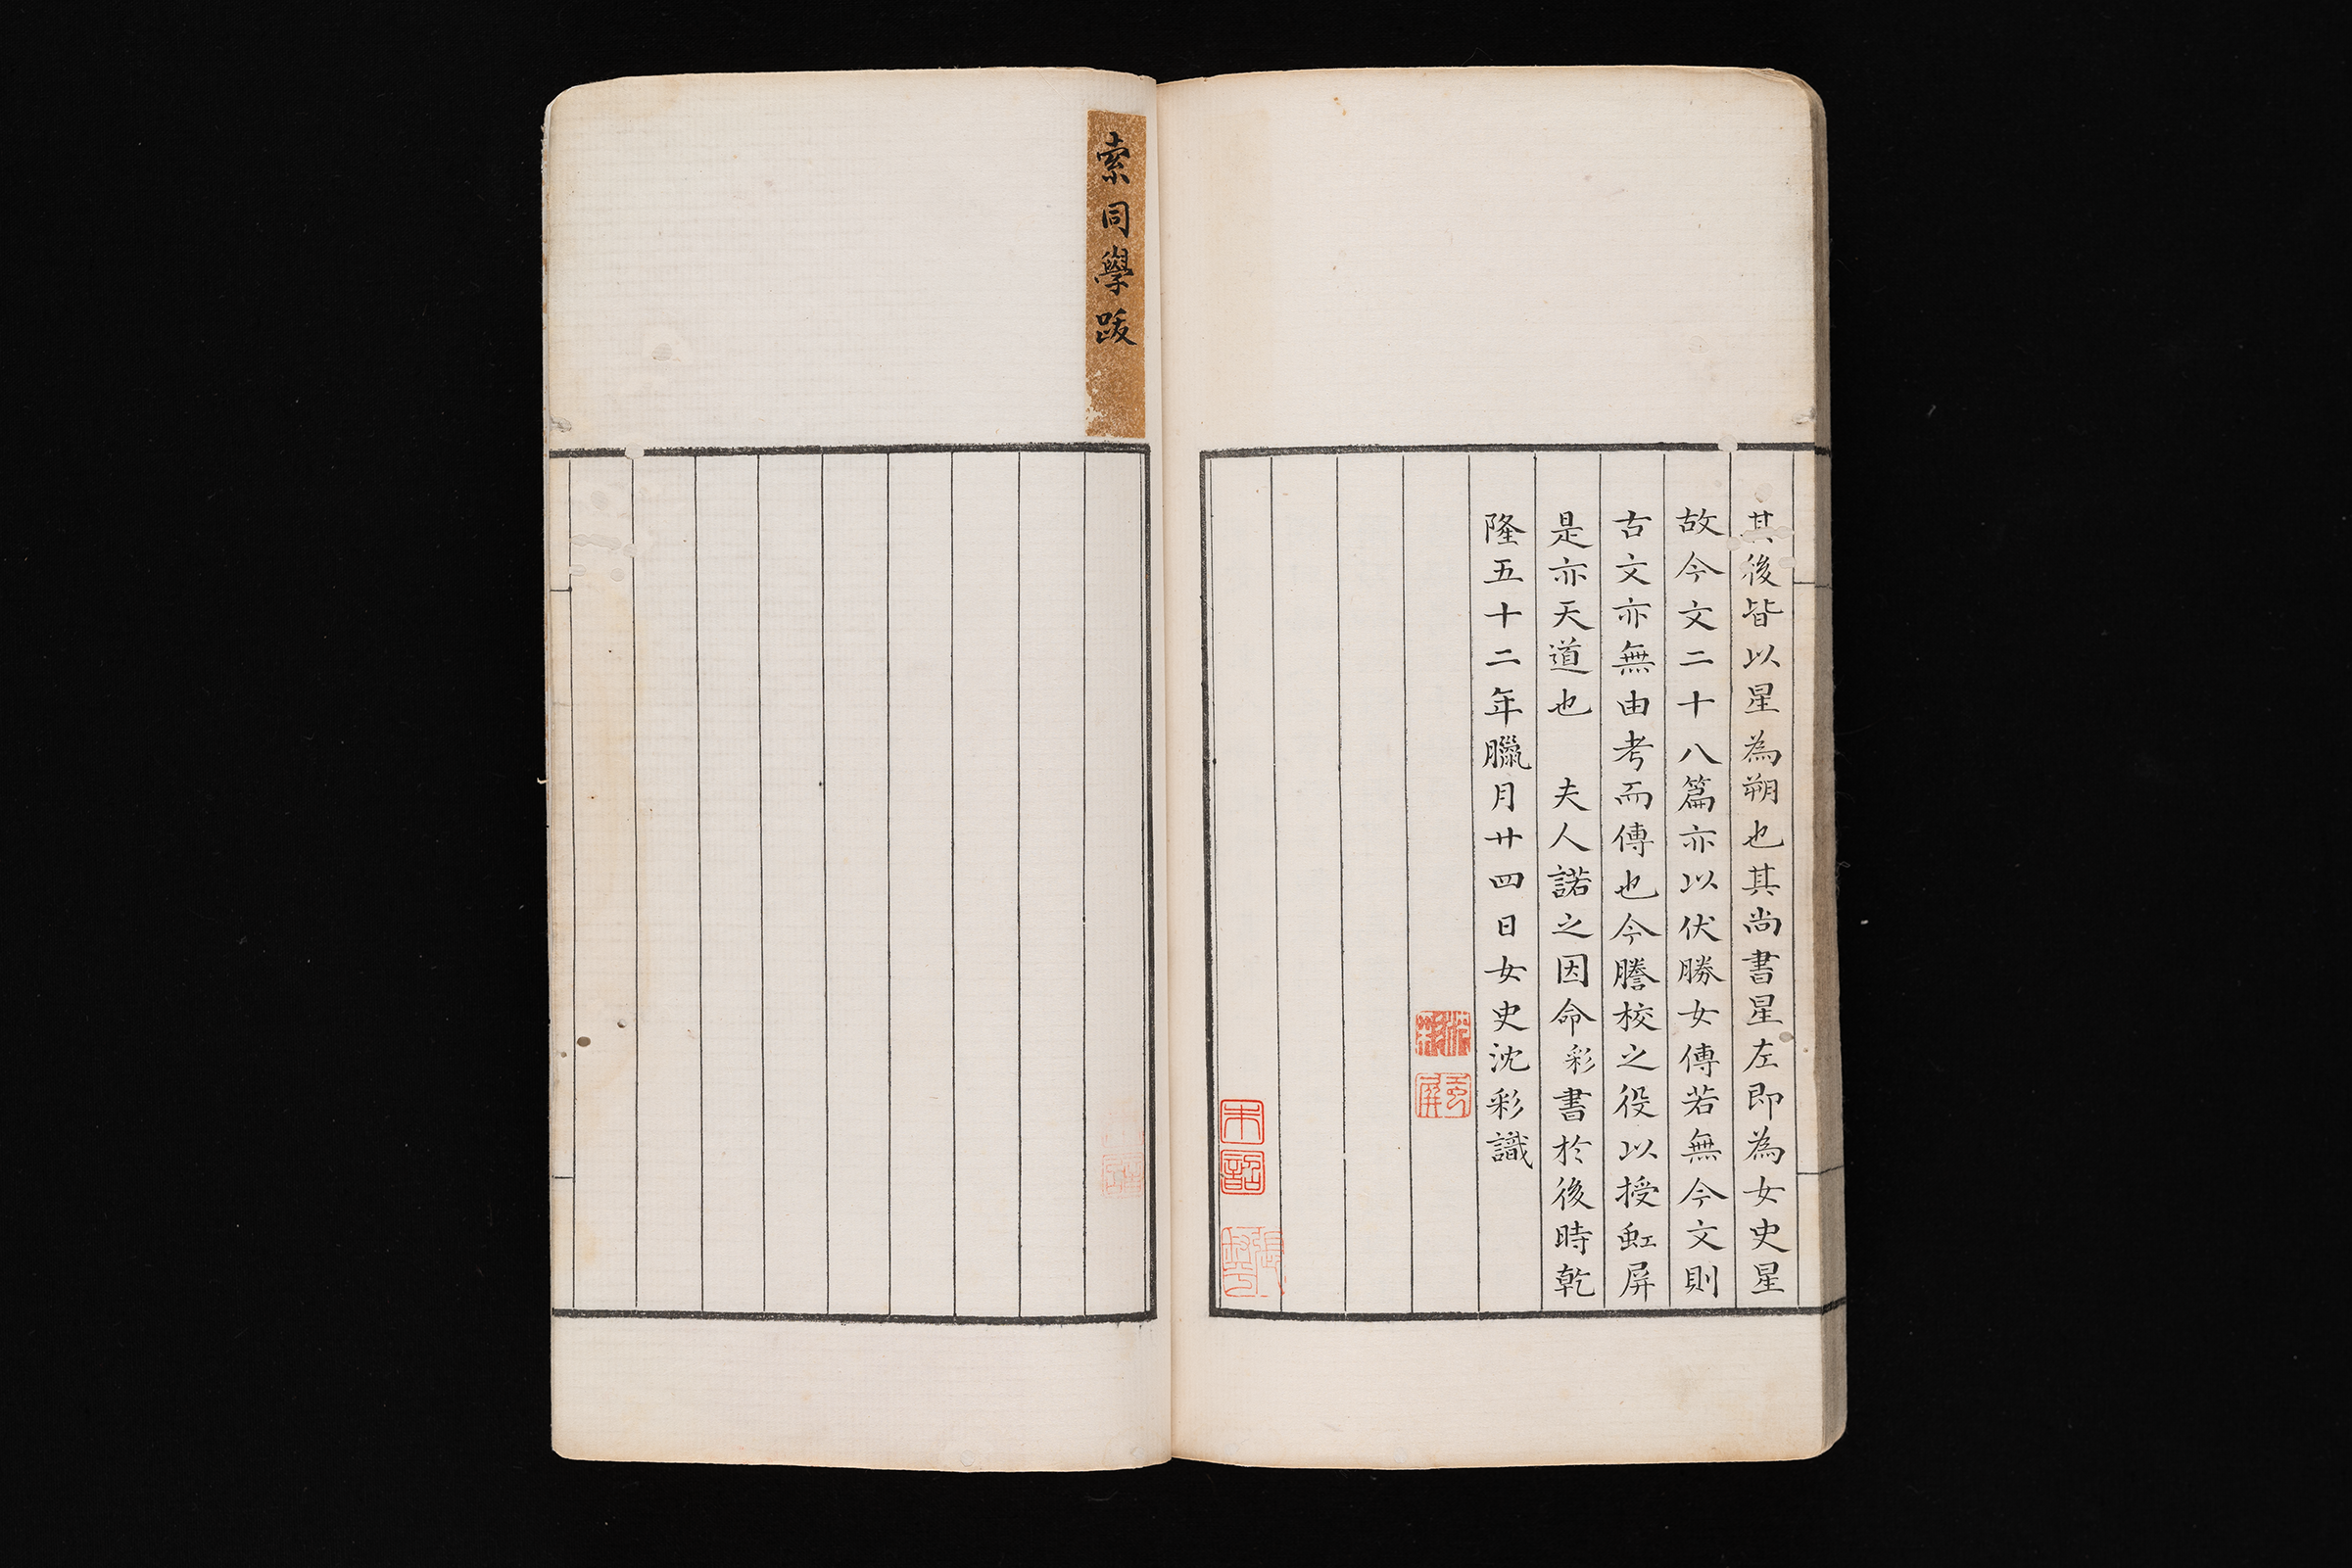 其後皆以星為朔也其尚書星左即為女史星
故今文二十八篇亦以伏勝女傳若無今文則
古文亦無由考而傳也今謄校之役以授虹屏
是亦天道也　夫人諾之因命彩書於後時乾
隆五十二年臘月廿四日女史沈彩識
沈彩
虹屏
索同學跋